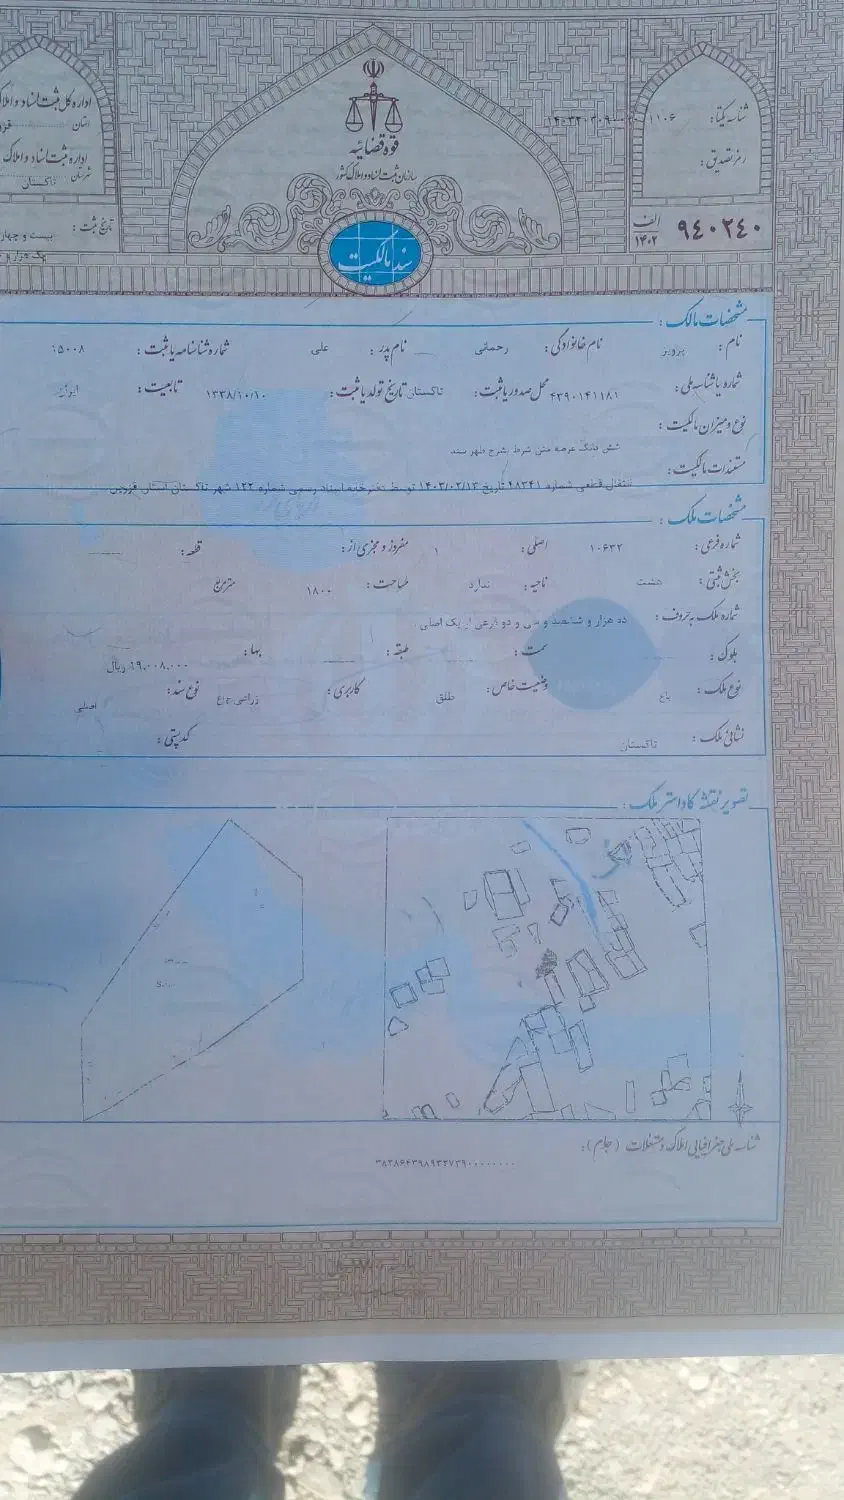 اداره کل ثبت اسناد و املاک
استان
اداره ثبت اسناد و املاک
شهرستان تاکستان
تاریخ ثبت : بیست و چهار
یک هزار و
قوه قضائیه
سازمان ثبت اسناد و املاک کشور
سند مالکیت
شناسه یکتا:
رمز تصدیق :
الف ۱۴۰۲ ۹۴۰۲۴۰
مشخصات مالک :
نام : پرویز نام خانوادگی : رحمانی نام پدر : علی شماره شناسنامه یا ثبت : ۱۵۰۰۸
شماره یا شناسه ملی : ۴۳۹۰۱۴۱۱۸۱ محل صدور یا ثبت : تاکستان تاریخ تولد یا ثبت : ۱۳۳۸/۱۰/۱۰ تابعیت : ایران
نوع و میزان مالکیت : شش دانگ عرصه متن شرط بشرح ظهر سند
مستندات مالکیت : انتقال قطعی شماره ۴۸۳۴۱ تاریخ ۱۴۰۳/۰۲/۱۳ توسط دفترخانه اسناد رسمی شماره ۱۲۲ شهر تاکستان استان قزوین
مشخصات ملک :
شماره فرعی : ۱۰۶۳۲ اصلی : ۱ مفروز و مجزی از : قطعه :
بخش ثبتی : هشت ناحیه : ندارد مساحت : ۱۸۰۰ متر مربع
شماره ملک به حروف : ده هزار و ششصد و سی و دو فرعی از یک اصلی
بلوک : سمت : طبقه : بها : ۱۹,۰۰۸,۰۰۰ ریال
نوع ملک : باغ وضعیت خاص : طلق کاربری : زراعی باغ نوع سند : اصلی
نشانی ملک : تاکستان کد پستی :
تصویر نقشه کاداستر ملک :
شناسه ملی جغرافیایی املاک و مستغلات (جام) :